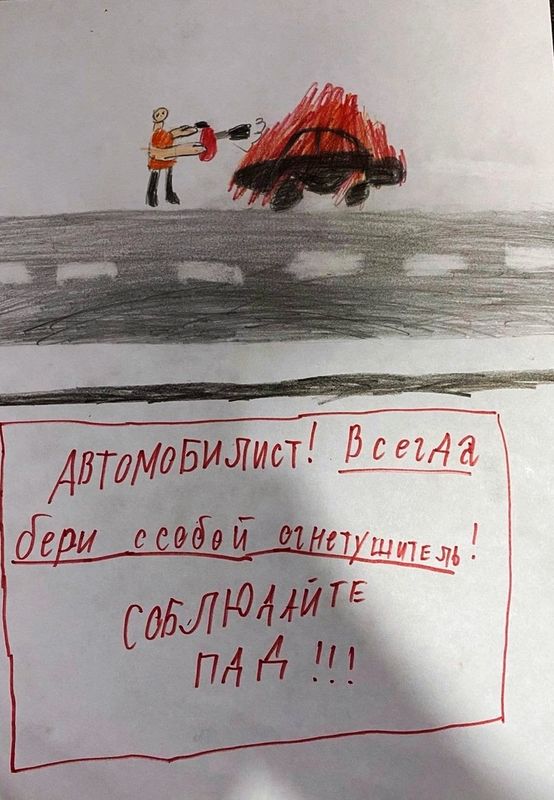 АВТОМОБИЛИСТ! Всегда
бери ссобой огнетушитель!
СОБЛЮДАЙТЕ
ПДД!!!